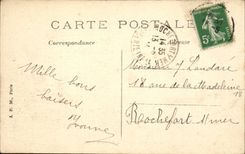 CARTE POSTALE
Correspondance
Adresse
Mille bons
baisers
Yvonne
Monsieur J Landaré
18 rue de la Madeleine 18
Rochefort s/mer
J. P. M., Paris